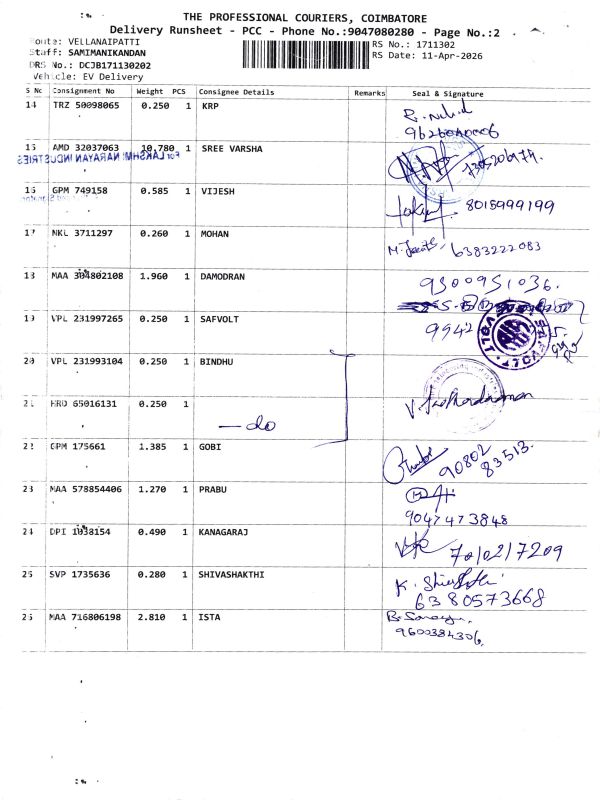 THE PROFESSIONAL COURIERS, COIMBATORE
Delivery Runsheet - PCC - Phone No.:9047080280 - Page No.:2
Route: VELLANAIPATTI
RS No.: 1711302
Staff: SAMIMANIKANDAN
RS Date: 11-Apr-2026
DRS No.: DCJB171130202
Vehicle: EV Delivery
S No Consignment No Weight PCS Consignee Details Remarks Seal & Signature
14 TRZ 50098065 0.250 1 KRP
15 AMD 32037063 10.780 1 SREE VARSHA
For LAKSHMI NARAYAN INDUSTRIES
16 GPM 749158 0.585 1 VIJESH 8015999199
17 NKL 3711297 0.260 1 MOHAN 6383222083
18 MAA 304802108 1.960 1 DAMODRAN 9500951036.
19 VPL 231997265 0.250 1 SAFVOLT 9942
SAFVOLT
20 VPL 231993104 0.250 1 BINDHU
21 HRD 65016131 0.250 1
- do
22 GPM 175661 1.385 1 GOBI 90802 83513.
23 MAA 578854406 1.270 1 PRABU
9047473848
24 DPI 1038154 0.490 1 KANAGARAJ 7010217209
25 SVP 1735636 0.280 1 SHIVASHAKTHI K.
6380573668
26 MAA 716806198 2.810 1 ISTA
9600384306.